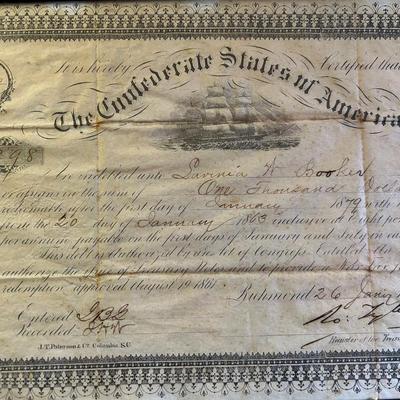 It is hereby Certified that
The Confederate States of America
298
are indebted unto Lavinia W Booker
or assigns in the sum of One Thousand Dolla
redeemable after the first day of January 1879 with
from the 20 day of January 1863 inclusive at Eight per
per annum payable on the first days of January and July in ea
This debt is authorized by an Act of Congress Entitled An
authorize the issue of Treasury Notes and to provide a War
redemption approved August 19 1861
Richmond 26 Jany
Entered
Recorded
Ro. Tyle
Register of the Treas
J.T. Paterson & Co. Columbia. S.C